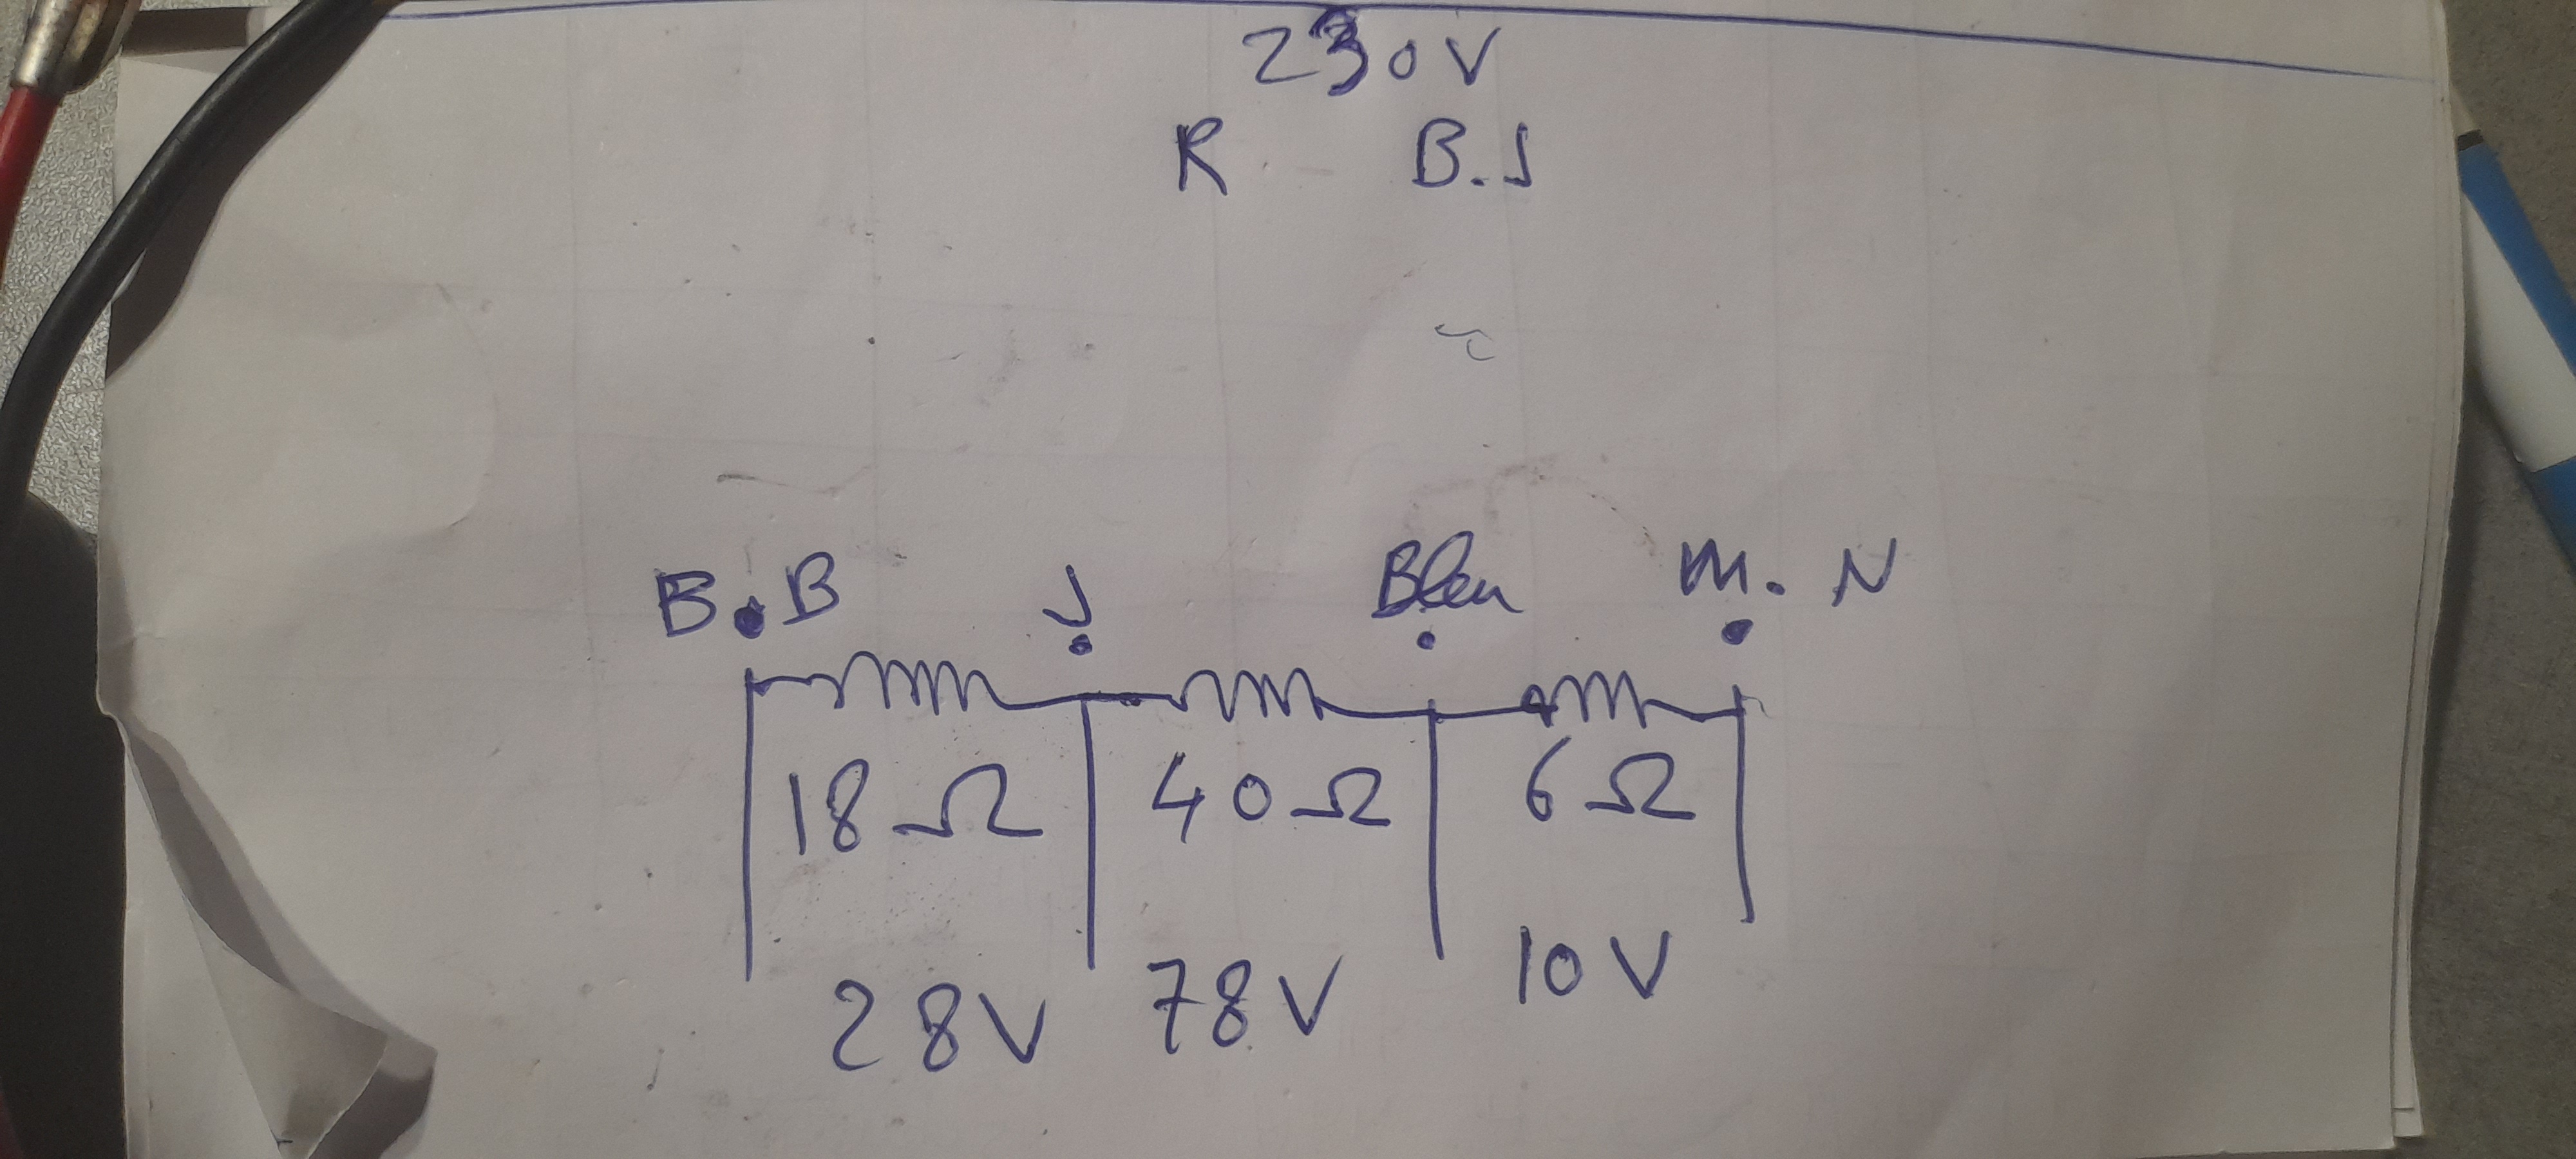 230V
R - B.J
B.B J Bleu M. N
18Ω 40Ω 6Ω
28V 78V 10V